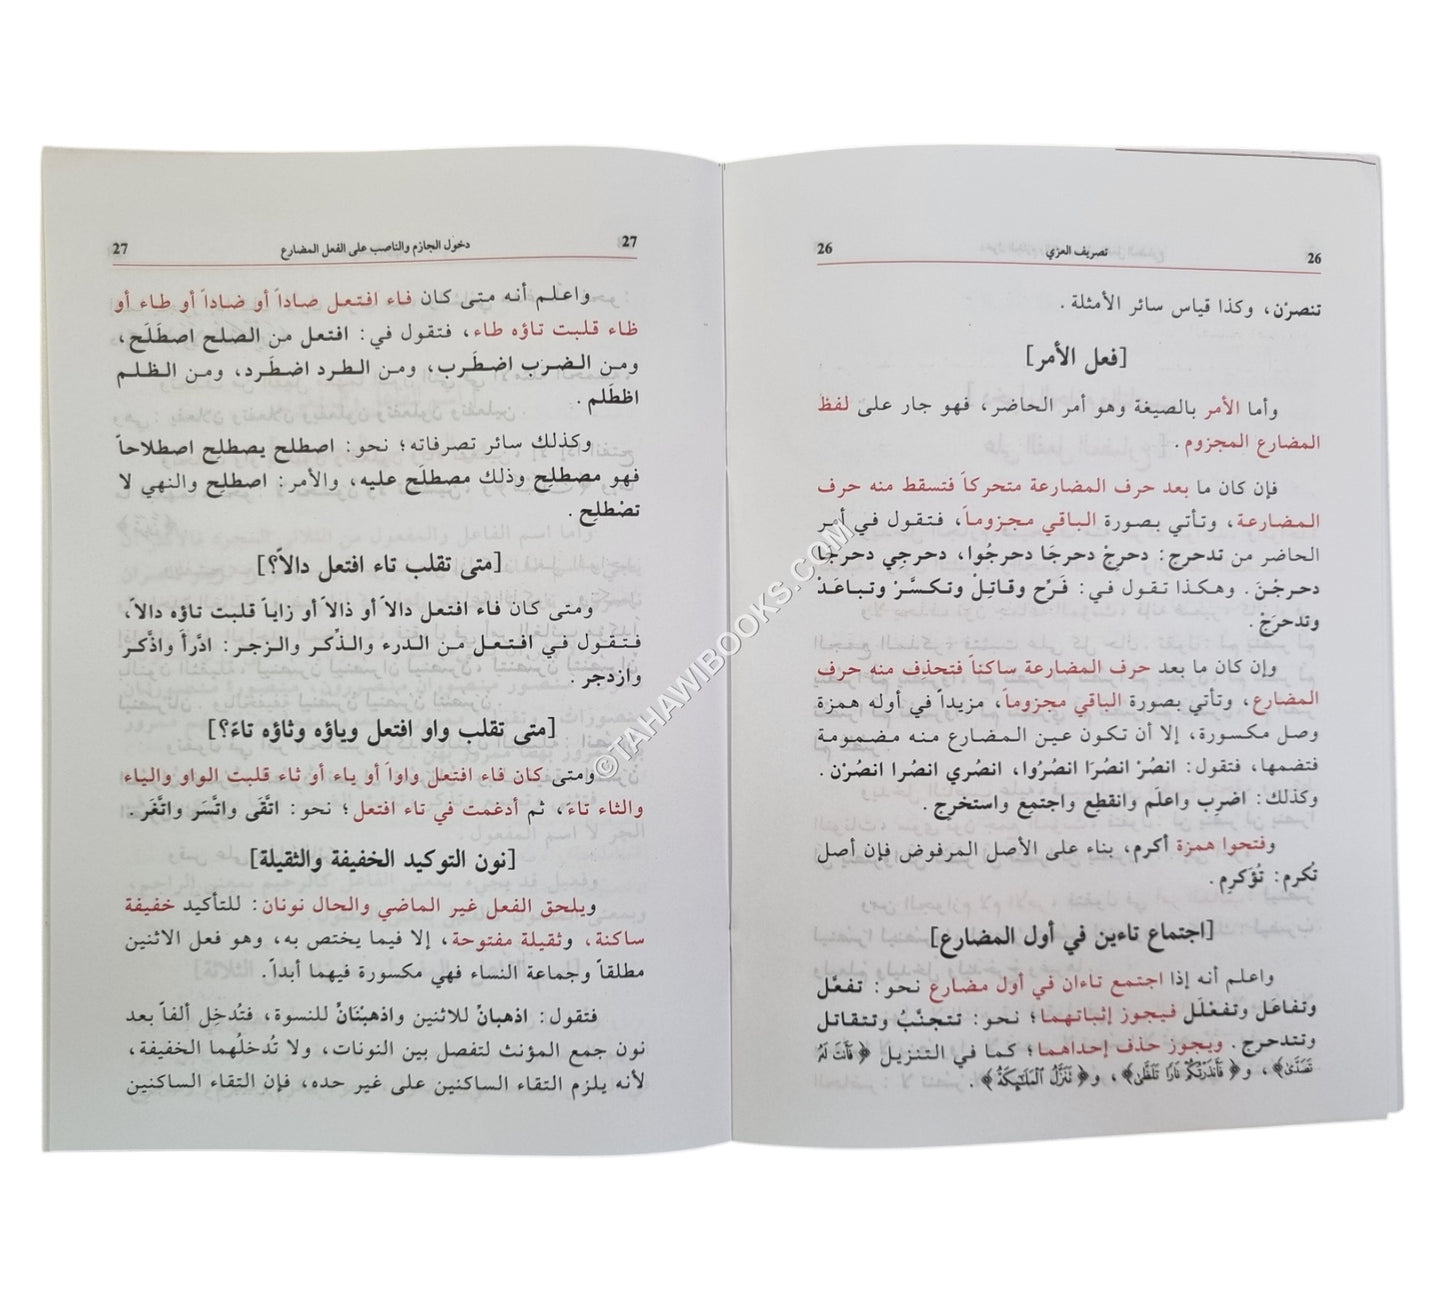 26 تصريف العزي 26
تنصرْن، وكذا قياس سائر الأمثلة .
[فعل الأمر]
وأما الأمر بالصيغة وهو أمر الحاضر، فهو جار على لفظ
المضارع المجزوم .
فإن كان ما بعد حرف المضارعة متحركاً فتسقط منه حرف
المضارعة، وتأتي بصورة الباقي مجزوماً، فتقول في أمر
الحاضر من تدحرج: دحرِجْ دحرجَا دحرجُوا، دحرجِي دحرجَا
دحرجْنَ. وهكذا تقول في: فَرِّح وقاتِلْ وتكسَّرْ وتباعَدْ
وتدحرَجْ.
وإن كان ما بعد حرف المضارعة ساكناً فتحذف منه حرف
المضارع، وتأتي بصورة الباقي مجزوماً، مزيداً في أوله همزة
وصل مكسورة، إلا أن تكون عين المضارع منه مضمومة
فتضمها، فتقول: انصُرْ انصُرَا انصُرُوا، انصُري انصُرا انصُرْن .
وكذلك: اضرِب واعلَم وانقطِع واجتمِع واستخرِج .
وفتحوا همزة أكرم، بناء على الأصل المرفوض فإن أصل
تُكرم: تُؤَكرِم.
[اجتماع تاءين في أول المضارع]
واعلم أنه إذا اجتمع تاءان في أول مضارع نحو: تفعَّل
وتفاعَل وتفعْلَل فيجوز إثباتهما؛ نحو: تتجنَّبُ وتتقاتل
وتتدحرج. ويجوز حذف إحداهما؛ كما في التنزيل ﴿ فَأَنتَ لَهُ
تَصَدَّىٰ﴾، و﴿ فَأَنذَرْتُكُمْ نَارًا تَلَظَّىٰ﴾، و﴿ تَنَزَّلُ الْمَلَٰٓئِكَةُ﴾ .
27 دخول الجازم والناصب على الفعل المضارع 27
واعلم أنه متى كان فاء افتعل صاداً أو ضاداً أو طاء أو
ظاء قلبت تاؤه طاء، فتقول في: افتعل من الصلح اصطَلَح،
ومن الضرب اضطَرب، ومن الطرد اضطَرد، ومن الظلم
اظطَلم .
وكذلك سائر تصرفاته؛ نحو: اصطلح يصطلِح اصطلاحاً
فهو مصطلِح وذلك مصطلَح عليه، والأمر: اصطلِح والنهي لا
تصْطلِح .
[متى تقلب تاء افتعل دالاً؟]
ومتى كان فاء افتعل دالاً أو ذالاً أو زاياً قلبت تاؤه دالاً،
فتقول في افتعل من الدرء والذِّكر والزجر: ادَّرأَ واذَّكر
وازدجر .
[متى تقلب واو افتعل وياؤه وثاؤه تاءً؟]
ومتى كان فاء افتعل واواً أو ياء أو ثاء قلبت الواو والياء
والثاء تاءً، ثم أدغمت في تاء افتعل؛ نحو: اتَّقَى واتَّسَر واتَّغَر.
[نون التوكيد الخفيفة والثقيلة]
ويلحق الفعل غير الماضي والحال نونان: للتأكيد خفيفة
ساكنة، وثقيلة مفتوحة، إلا فيما يختص به، وهو فعل الاثنين
مطلقاً وجماعة النساء فهي مكسورة فيهما أبداً.
فتقول: اذهبانِّ للاثنين واذهبْنَانِّ للنسوة، فتُدخِل ألفاً بعد
نون جمع المؤنث لتفصل بين النونات، ولا تُدخلُهما الخفيفة،
لأنه يلزم التقاء الساكنين على غير حده، فإن التقاء الساكنين
©TAHAWIBOOKS.COM